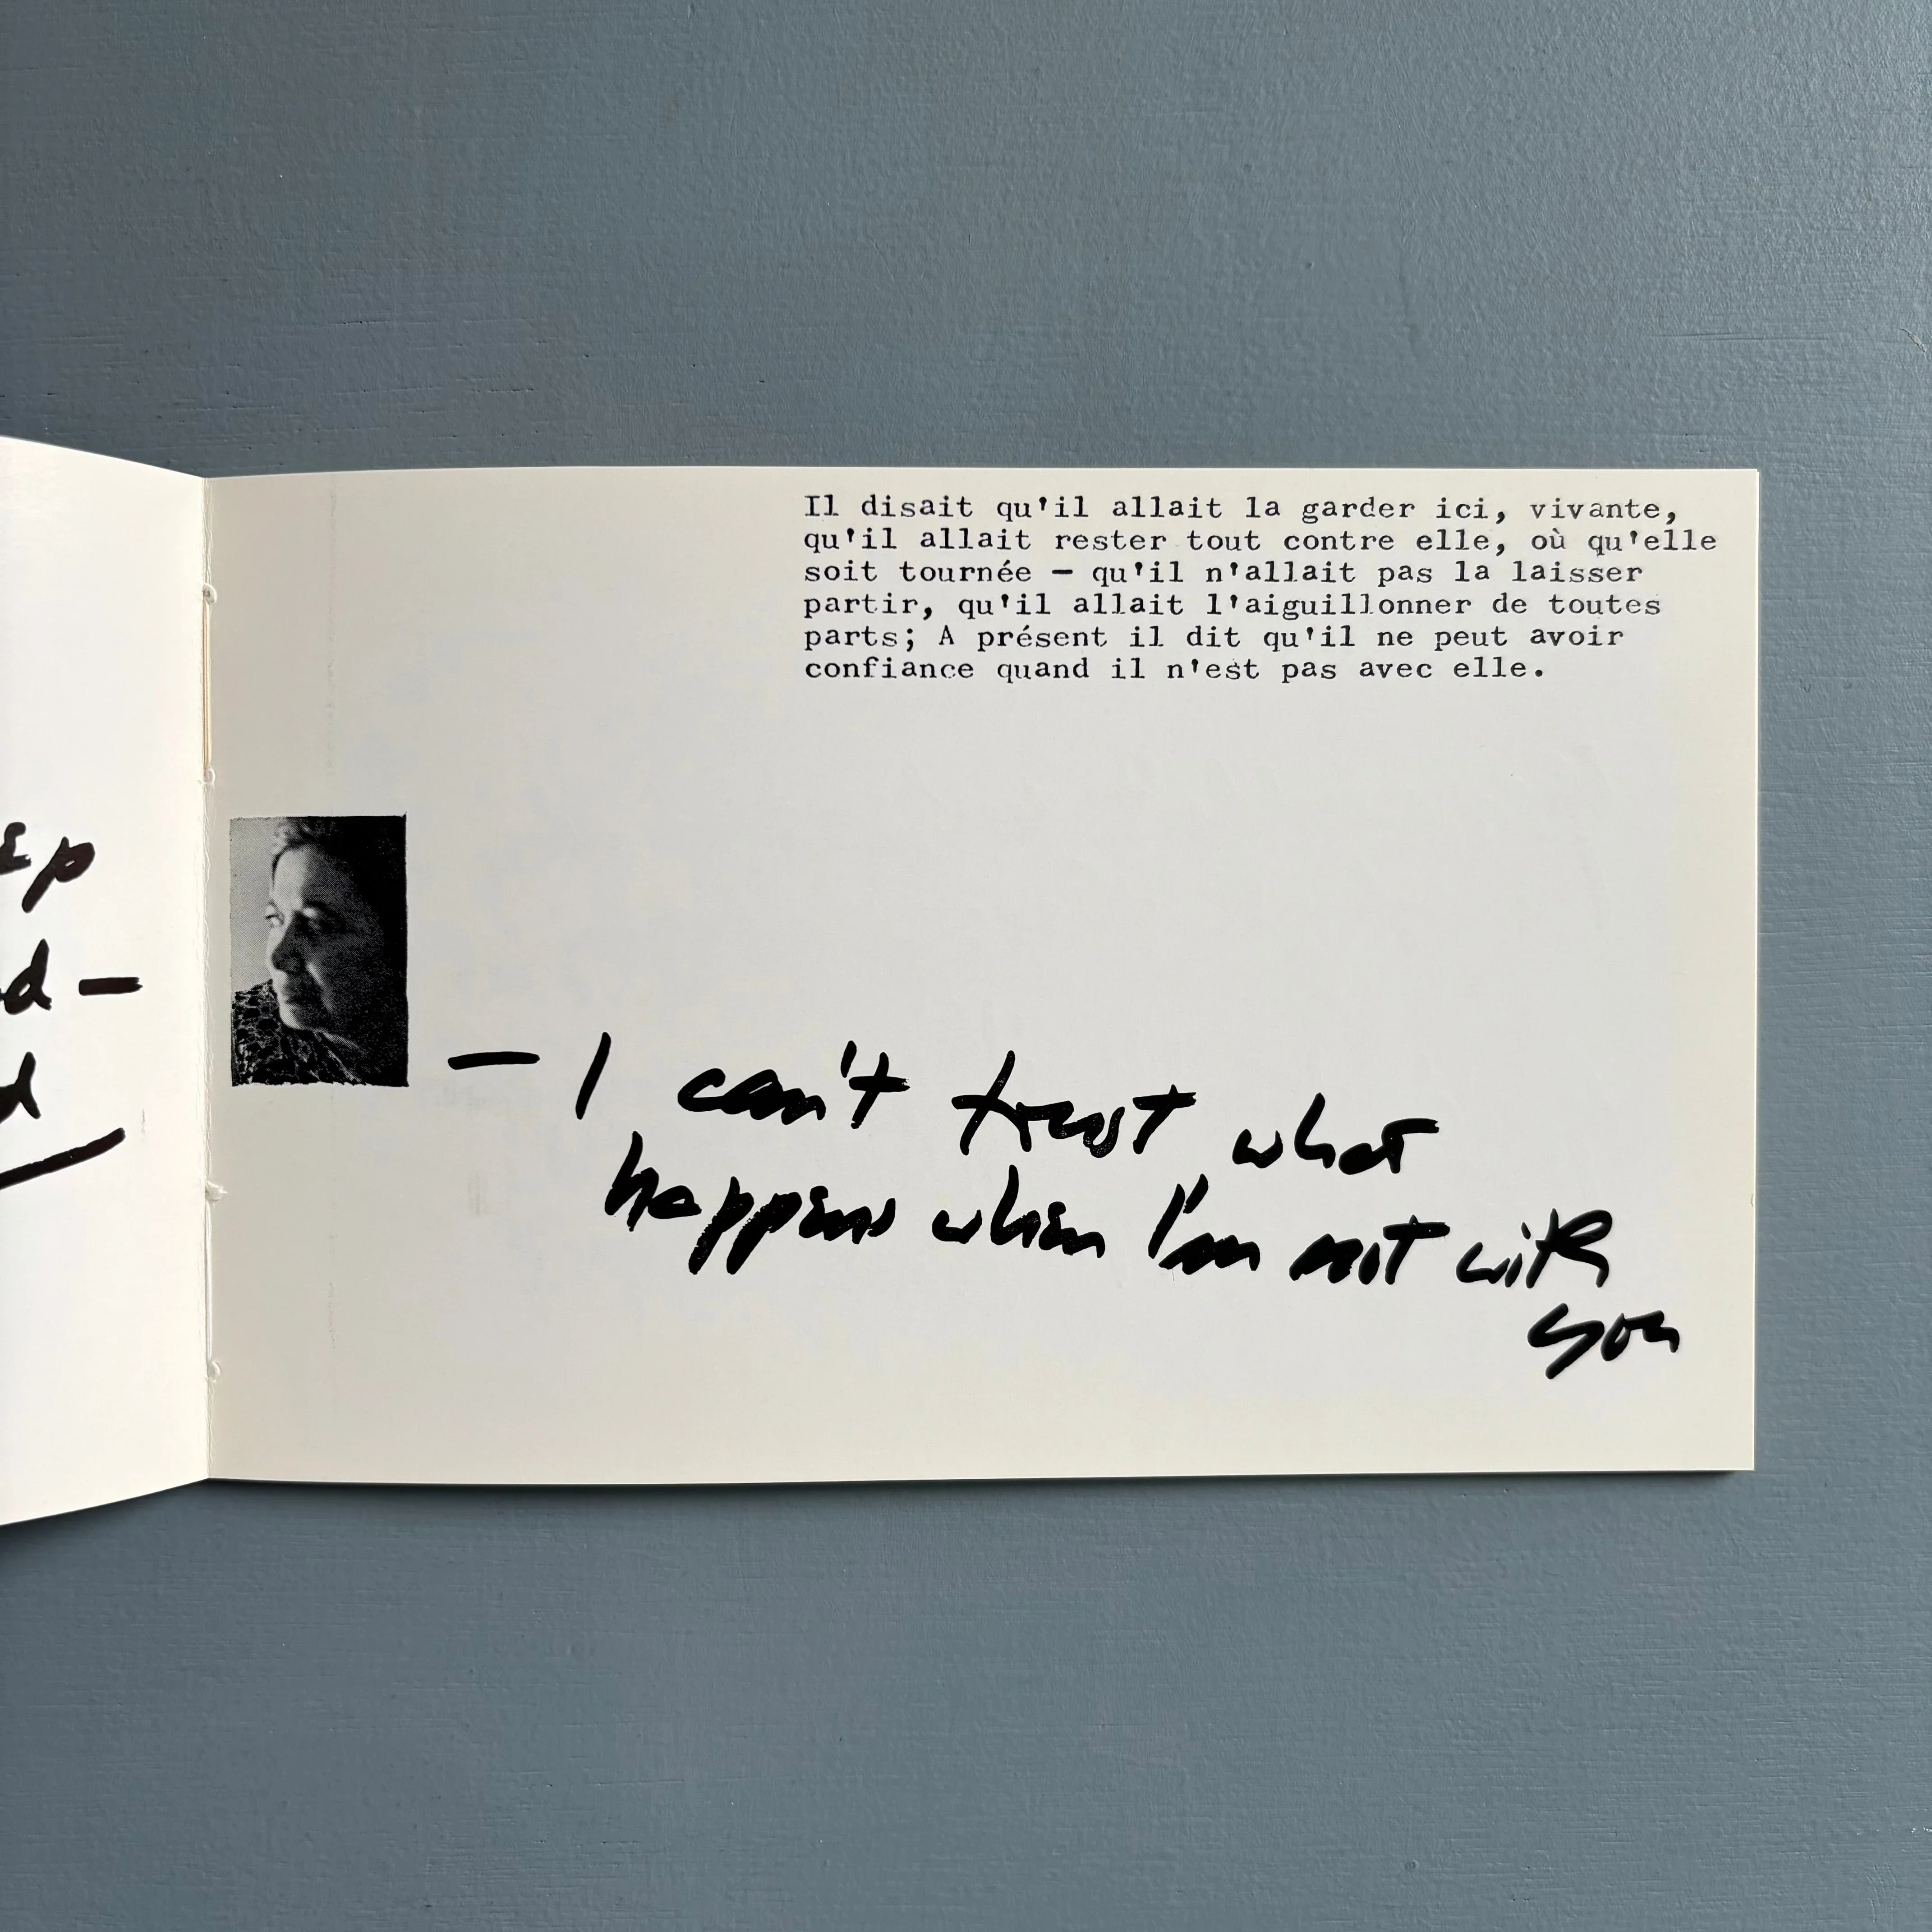 Il disait qu'il allait la garder ici, vivante,
qu'il allait rester tout contre elle, où qu'elle
soit tournée — qu'il n'allait pas la laisser
partir, qu'il allait l'aiguillonner de toutes
parts; A présent il dit qu'il ne peut avoir
confiance quand il n'est pas avec elle.
— I can't trust what
happens when I'm not with
you